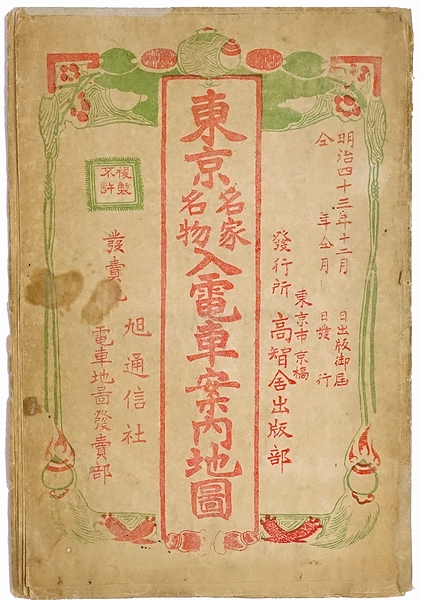 明治四十三年十二月　日出版御届
仝　年仝月　日發行
東京市京橋
發行所 高智舍出版部
東京名家名物入電車案内地圖
複製
不許
發賣
旭通信社
電車地圖發賣部